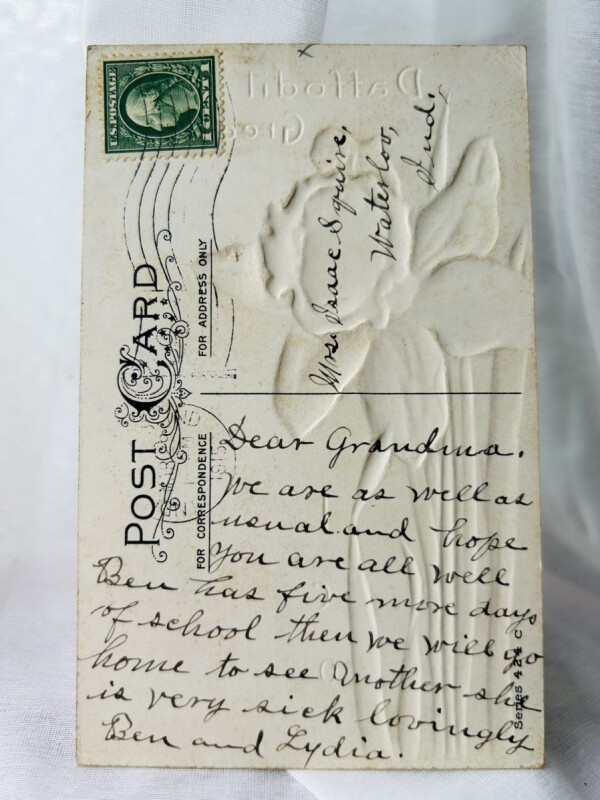 U.S. POSTAGE
1 CENT 1
POST CARD
FOR ADDRESS ONLY
Mrs. Isaac Squire,
Waterloo,
Ind.
FOR CORRESPONDENCE
Dear Grandma.
We are as well as
usual and hope
you are all well
Ben has five more days
of school then we will go
home to see Mother she
is very sick lovingly
Ben and Lydia.
Series 424 C
Daffodil